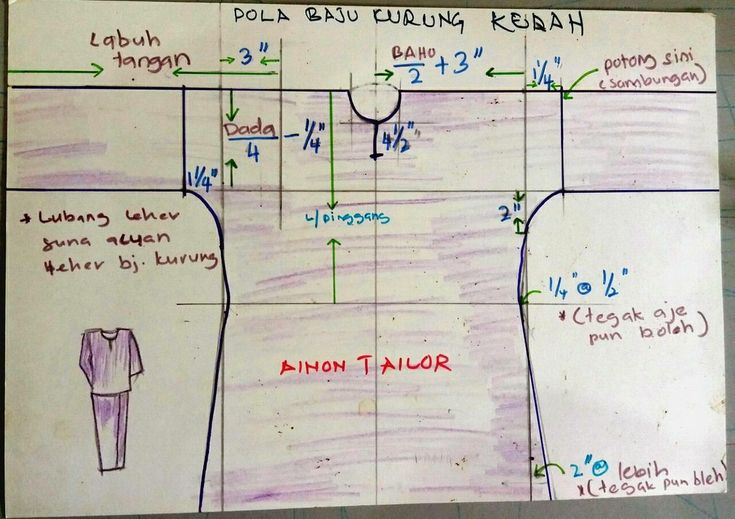 POLA BAJU KURUNG KEDAH
Labuh
tangan
3"
BAHU/2 + 3"
1/4"
potong sini
(sambungan)
Dada/4 - 1/4"
4 1/2"
1 1/4"
L/pinggang
2"
* Lubang leher
guna acuan
leher bj. kurung
1/4" @ 1/2"
* (tegak aje
pun boleh)
AINON TAILOR
2" @ lebih
* (tegak pun bleh)